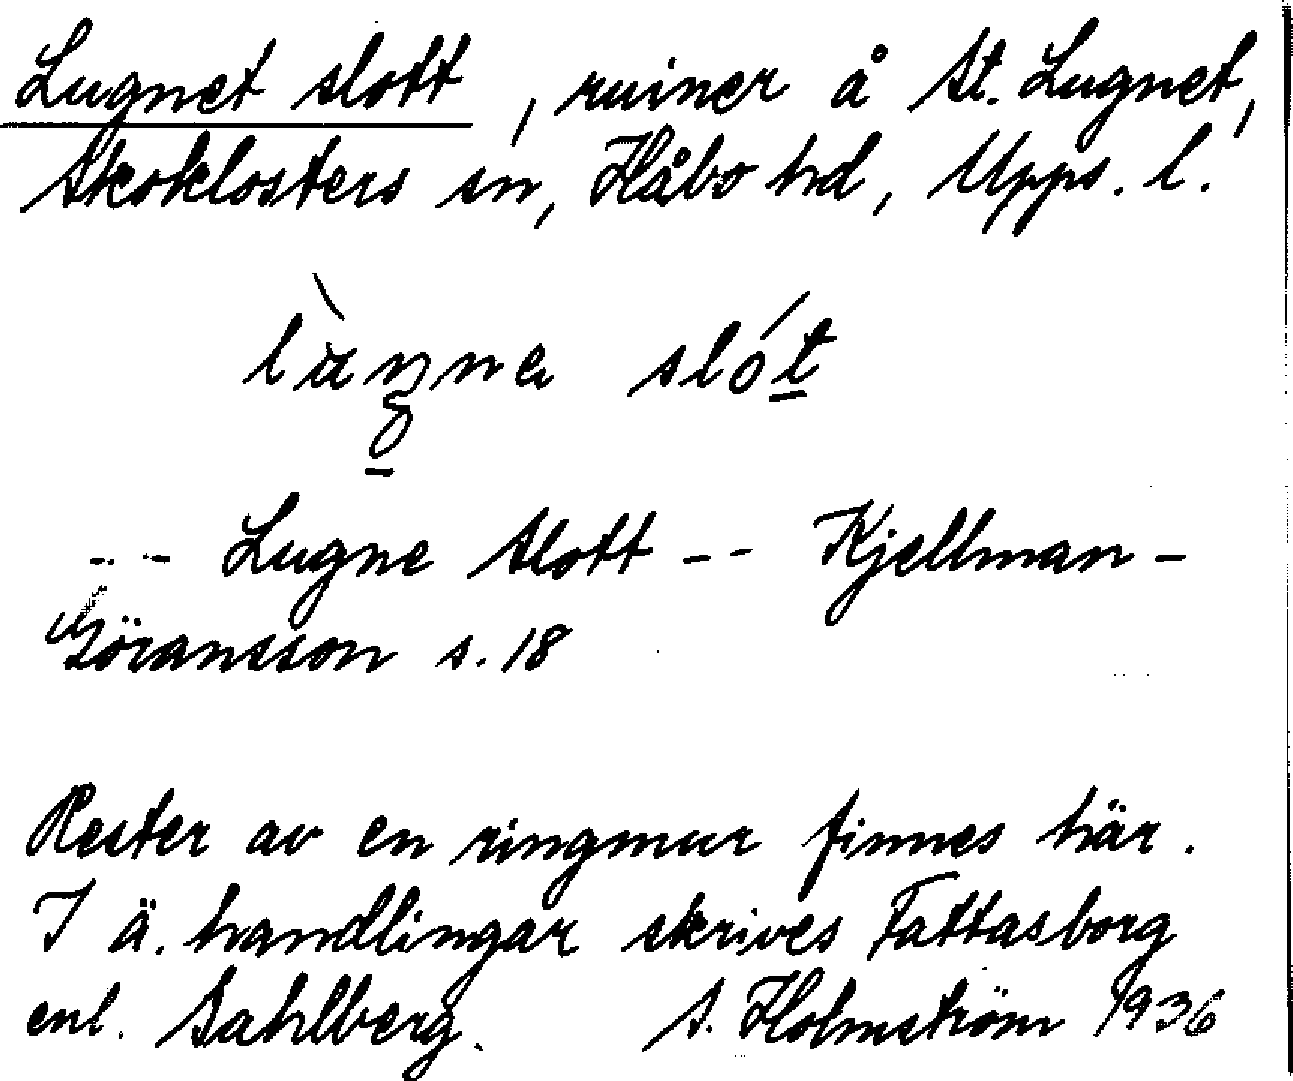 Lugnet slott, ruiner å St. Lugnet,
Skoklosters sn, Håbo hd, Upps. l.
slót
--- Lugne Slott -- Kjellman-
Göransson s. 18
Rester av en ringmur finnes här.
I ä. handlingar skrives Fattasborg
enl. Sahlberg. S. Holmström 1936